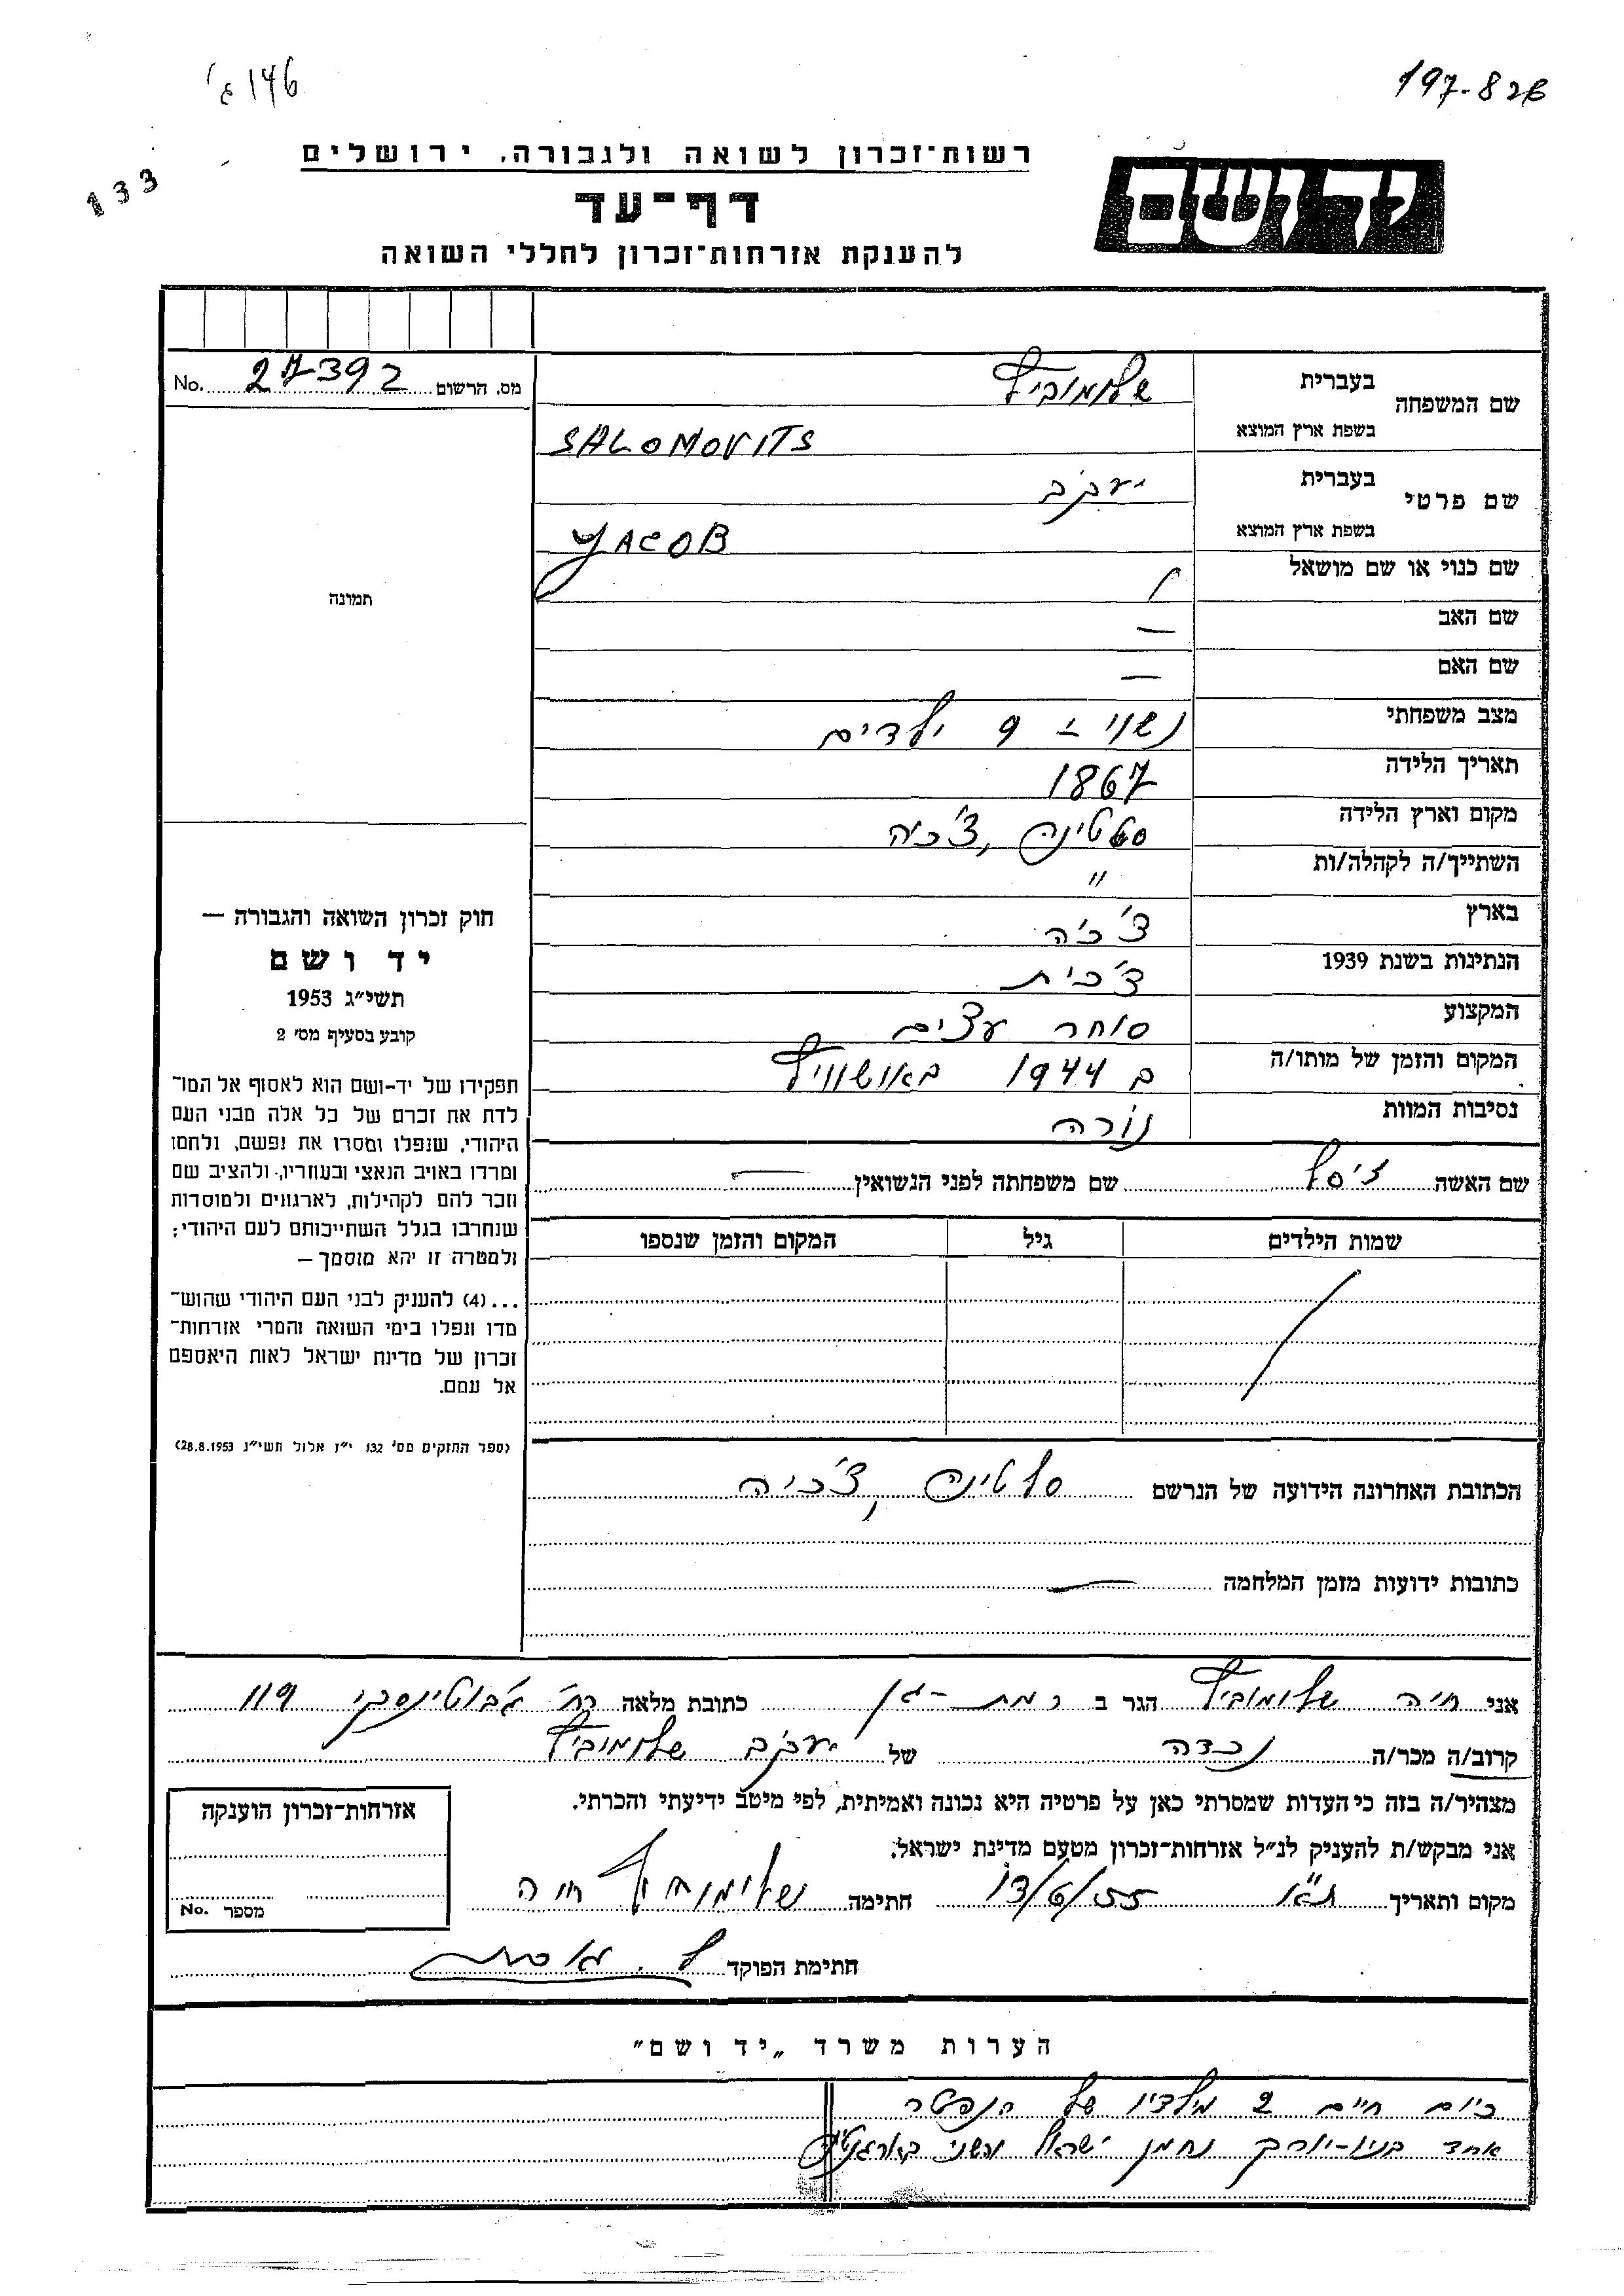 146 ג'
197-826
133
רשות־זכרון לשואה ולגבורה, ירושלים
יד ושם
דף־עד
להענקת אזרחות־זכרון לחללי השואה
מס. הרשום 27392 No.
שם המשפחה
בעברית שלומוביץ
בשפת ארץ המוצא SALOMOVITS
שם פרטי
בעברית יעקב
בשפת ארץ המוצא YACOB
שם כנוי או שם מושאל /
שם האב —
שם האם —
מצב משפחתי נשוי + 9 ילדים
תאריך הלידה 1867
מקום וארץ הלידה סלטינה, צ'כיה
השתייך/ה לקהלה/ות "
בארץ צ'כיה
הנתינות בשנת 1939 צ'כית
המקצוע סוחר עצים
המקום והזמן של מותו/ה ב 1944 באושוויץ
נסיבות המוות נורה
תמונה
חוק זכרון השואה והגבורה —
יד ושם
תשי״ג 1953
קובע בסעיף מס׳ 2
תפקידו של יד-ושם הוא לאסוף אל המו־
לדת את זכרם של כל אלה מבני העם
היהודי, שנפלו ומסרו את נפשם, נלחמו
ומרדו באויב הנאצי ובעוזריו, ולהציב שם
וזכר להם לקהילות, לארגונים ולמוסדות
שנחרבו בגלל השתייכותם לעם היהודי;
ולמטרה זו יהא מוסמך —
...(4) להעניק לבני העם היהודי שהוש־
מדו ונפלו בימי השואה והמרי אזרחות־
זכרון של מדינת ישראל לאות היאספם
אל עמם.
(ספר החוקים מס׳ 132 י״ז אלול תשי״ג 28.8.1953)
שם האשה ציסל שם משפחתה לפני הנשואין —
שמות הילדים גיל המקום והזמן שנספו
הכתובת האחרונה הידועה של הנרשם סלטינה, צ'כיה
כתובות ידועות מזמן המלחמה —
אני חיה שלומוביץ הגר ב רמת-גן כתובת מלאה רח' ז'בוטינסקי 119
קרוב/ה מכר/ה נכדה של יעקב שלומוביץ
מצהיר/ה בזה כי העדות שמסרתי כאן על פרטיה היא נכונה ואמיתית, לפי מיטב ידיעתי והכרתי.
אני מבקש/ת להעניק לנ״ל אזרחות־זכרון מטעם מדינת ישראל.
מקום ותאריך ת"א 13/6/55 חתימה שלומוביץ חיה
חתימת הפוקד
אזרחות־זכרון הוענקה
מספר No.
הערות משרד „יד ושם״
כיום חיים 2 מילדיו של הנפטר
אחד בניו-יורק נחמן ישראל והשני בארגנטינה